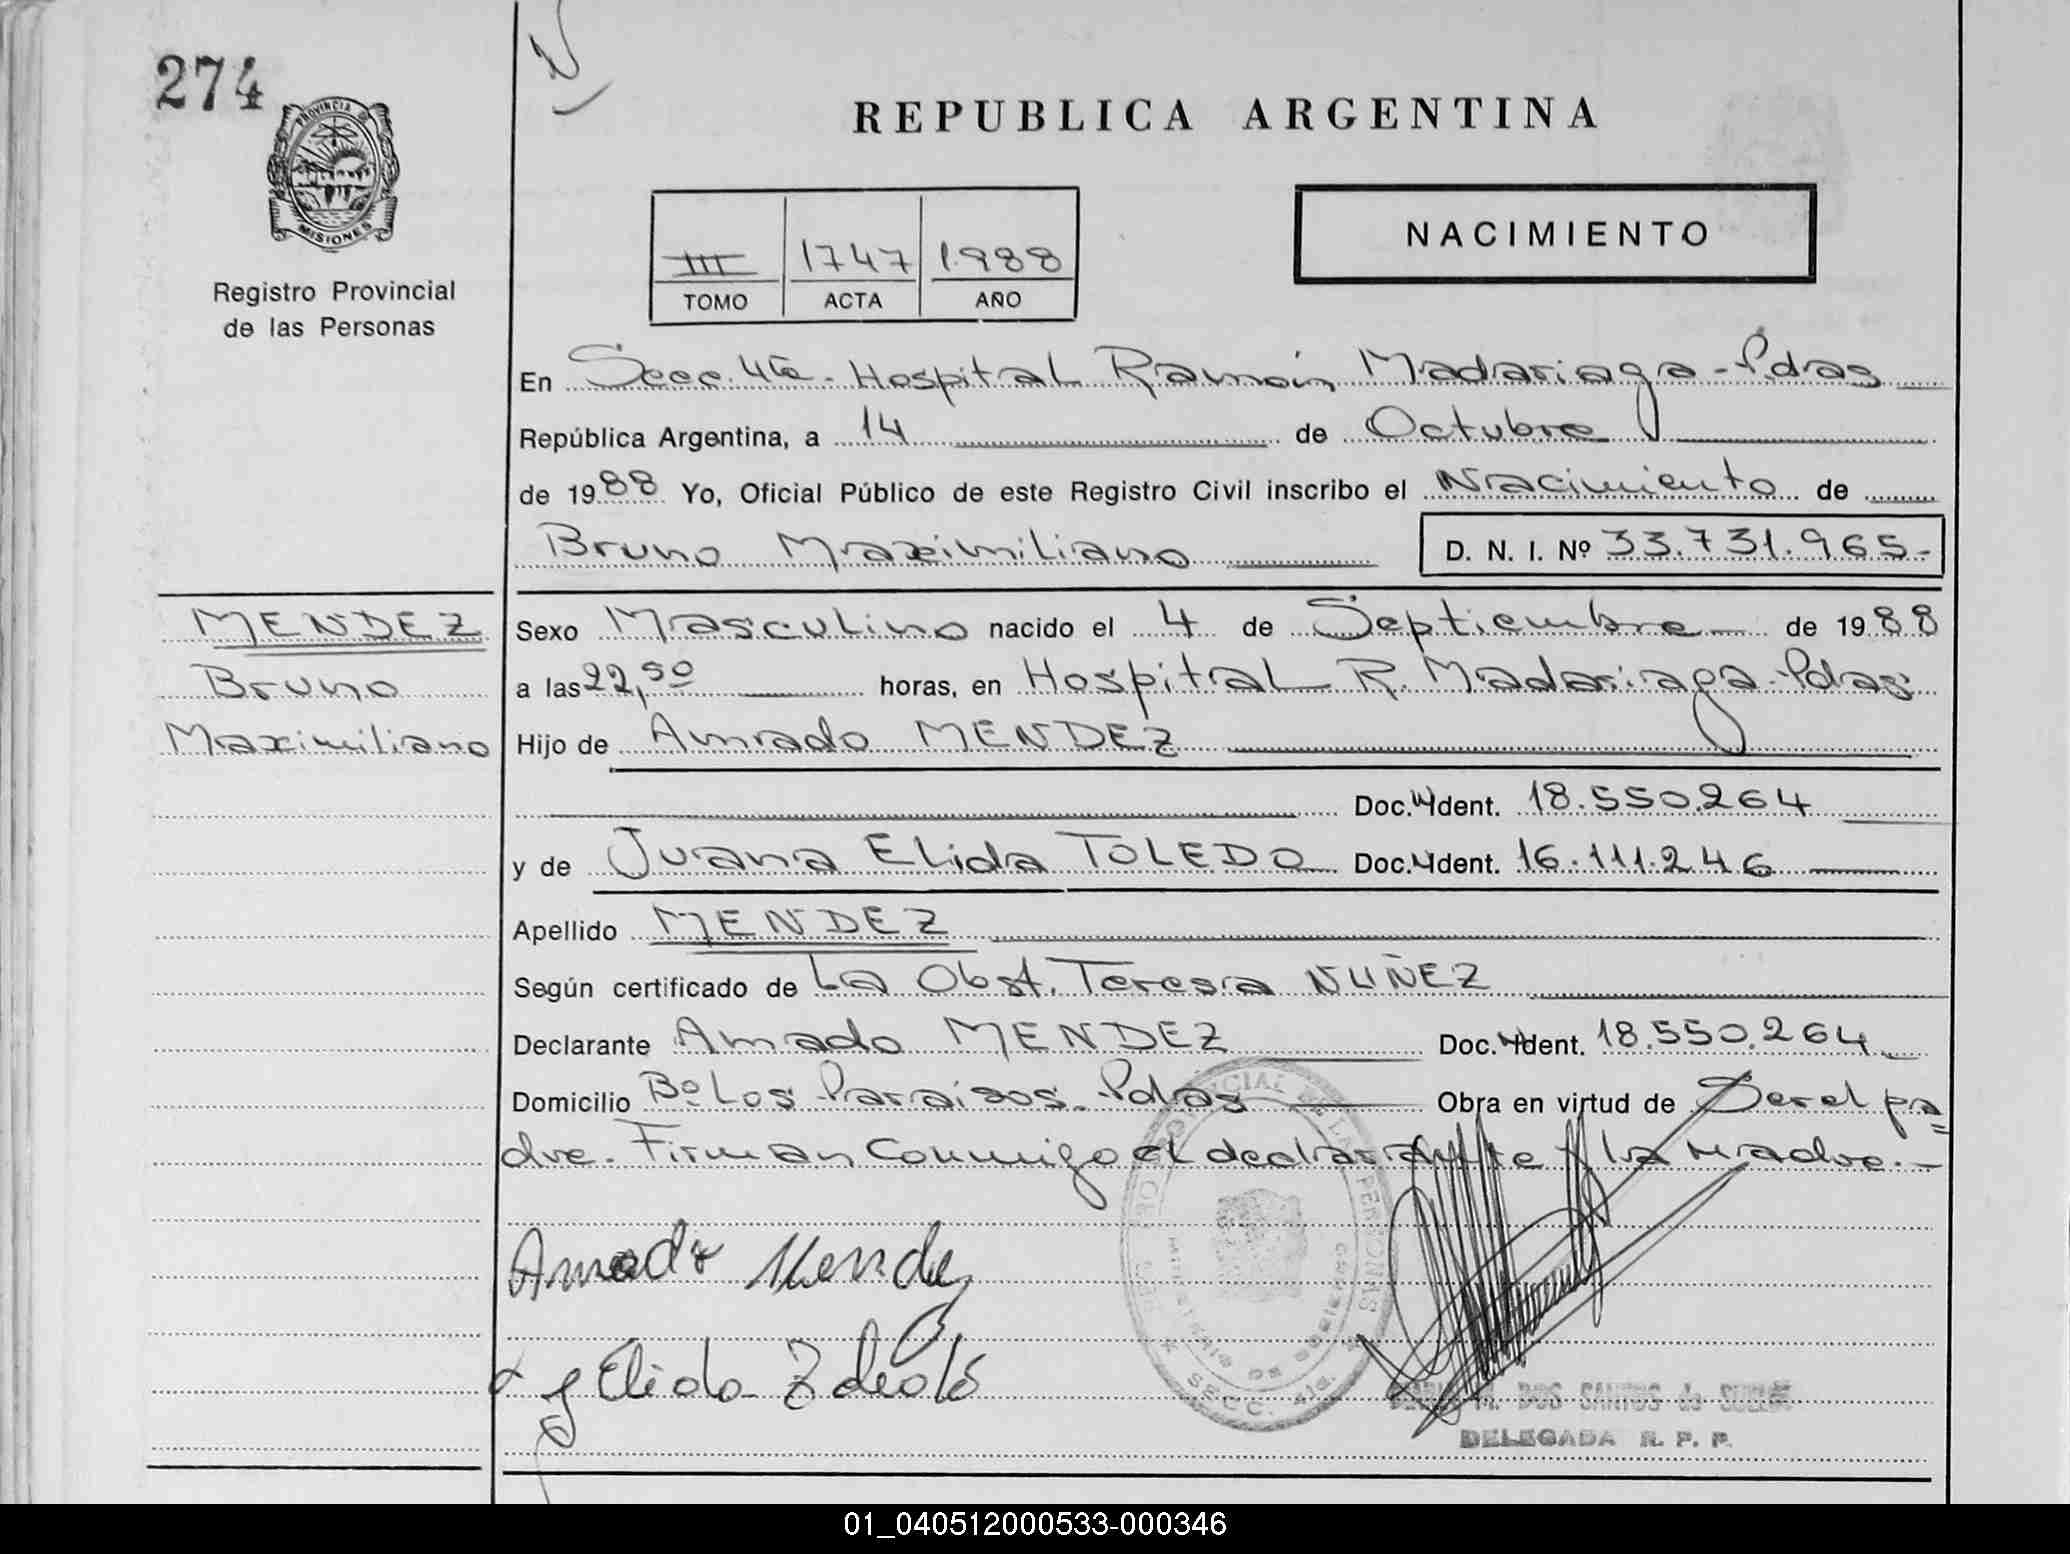 274
PROVINCIA DE
MISIONES
Registro Provincial
de las Personas
REPUBLICA ARGENTINA
III 1747 1988
TOMO ACTA AÑO
NACIMIENTO
En Secc. 4ta. Hospital Ramón Madariaga - Pdas
República Argentina, a 14 de Octubre
de 1988 Yo, Oficial Público de este Registro Civil inscribo el Nacimiento de
Bruno Maximiliano D. N. I. Nº 33.731.965-
MENDEZ
Bruno
Maximiliano
Sexo Masculino nacido el 4 de Septiembre de 1988
a las 22,50 horas, en Hospital R. Madariaga - Pdas
Hijo de Amado MENDEZ
Doc. Ident. 18.550.264
y de Juana Elida TOLEDO Doc. Ident. 16.111.246
Apellido MENDEZ
Según certificado de La Obst. Teresa NUÑEZ
Declarante Amado MENDEZ Doc. Ident. 18.550.264
Domicilio Bº Los Paraisos - Pdas Obra en virtud de Ser el pa
dre. Firman conmigo el declarante y la madre.-
Amado Mendez
Elida
SECC. 4ta.
DOS SANTOS de
DELEGADA R. P. P.
01_040512000533-000346